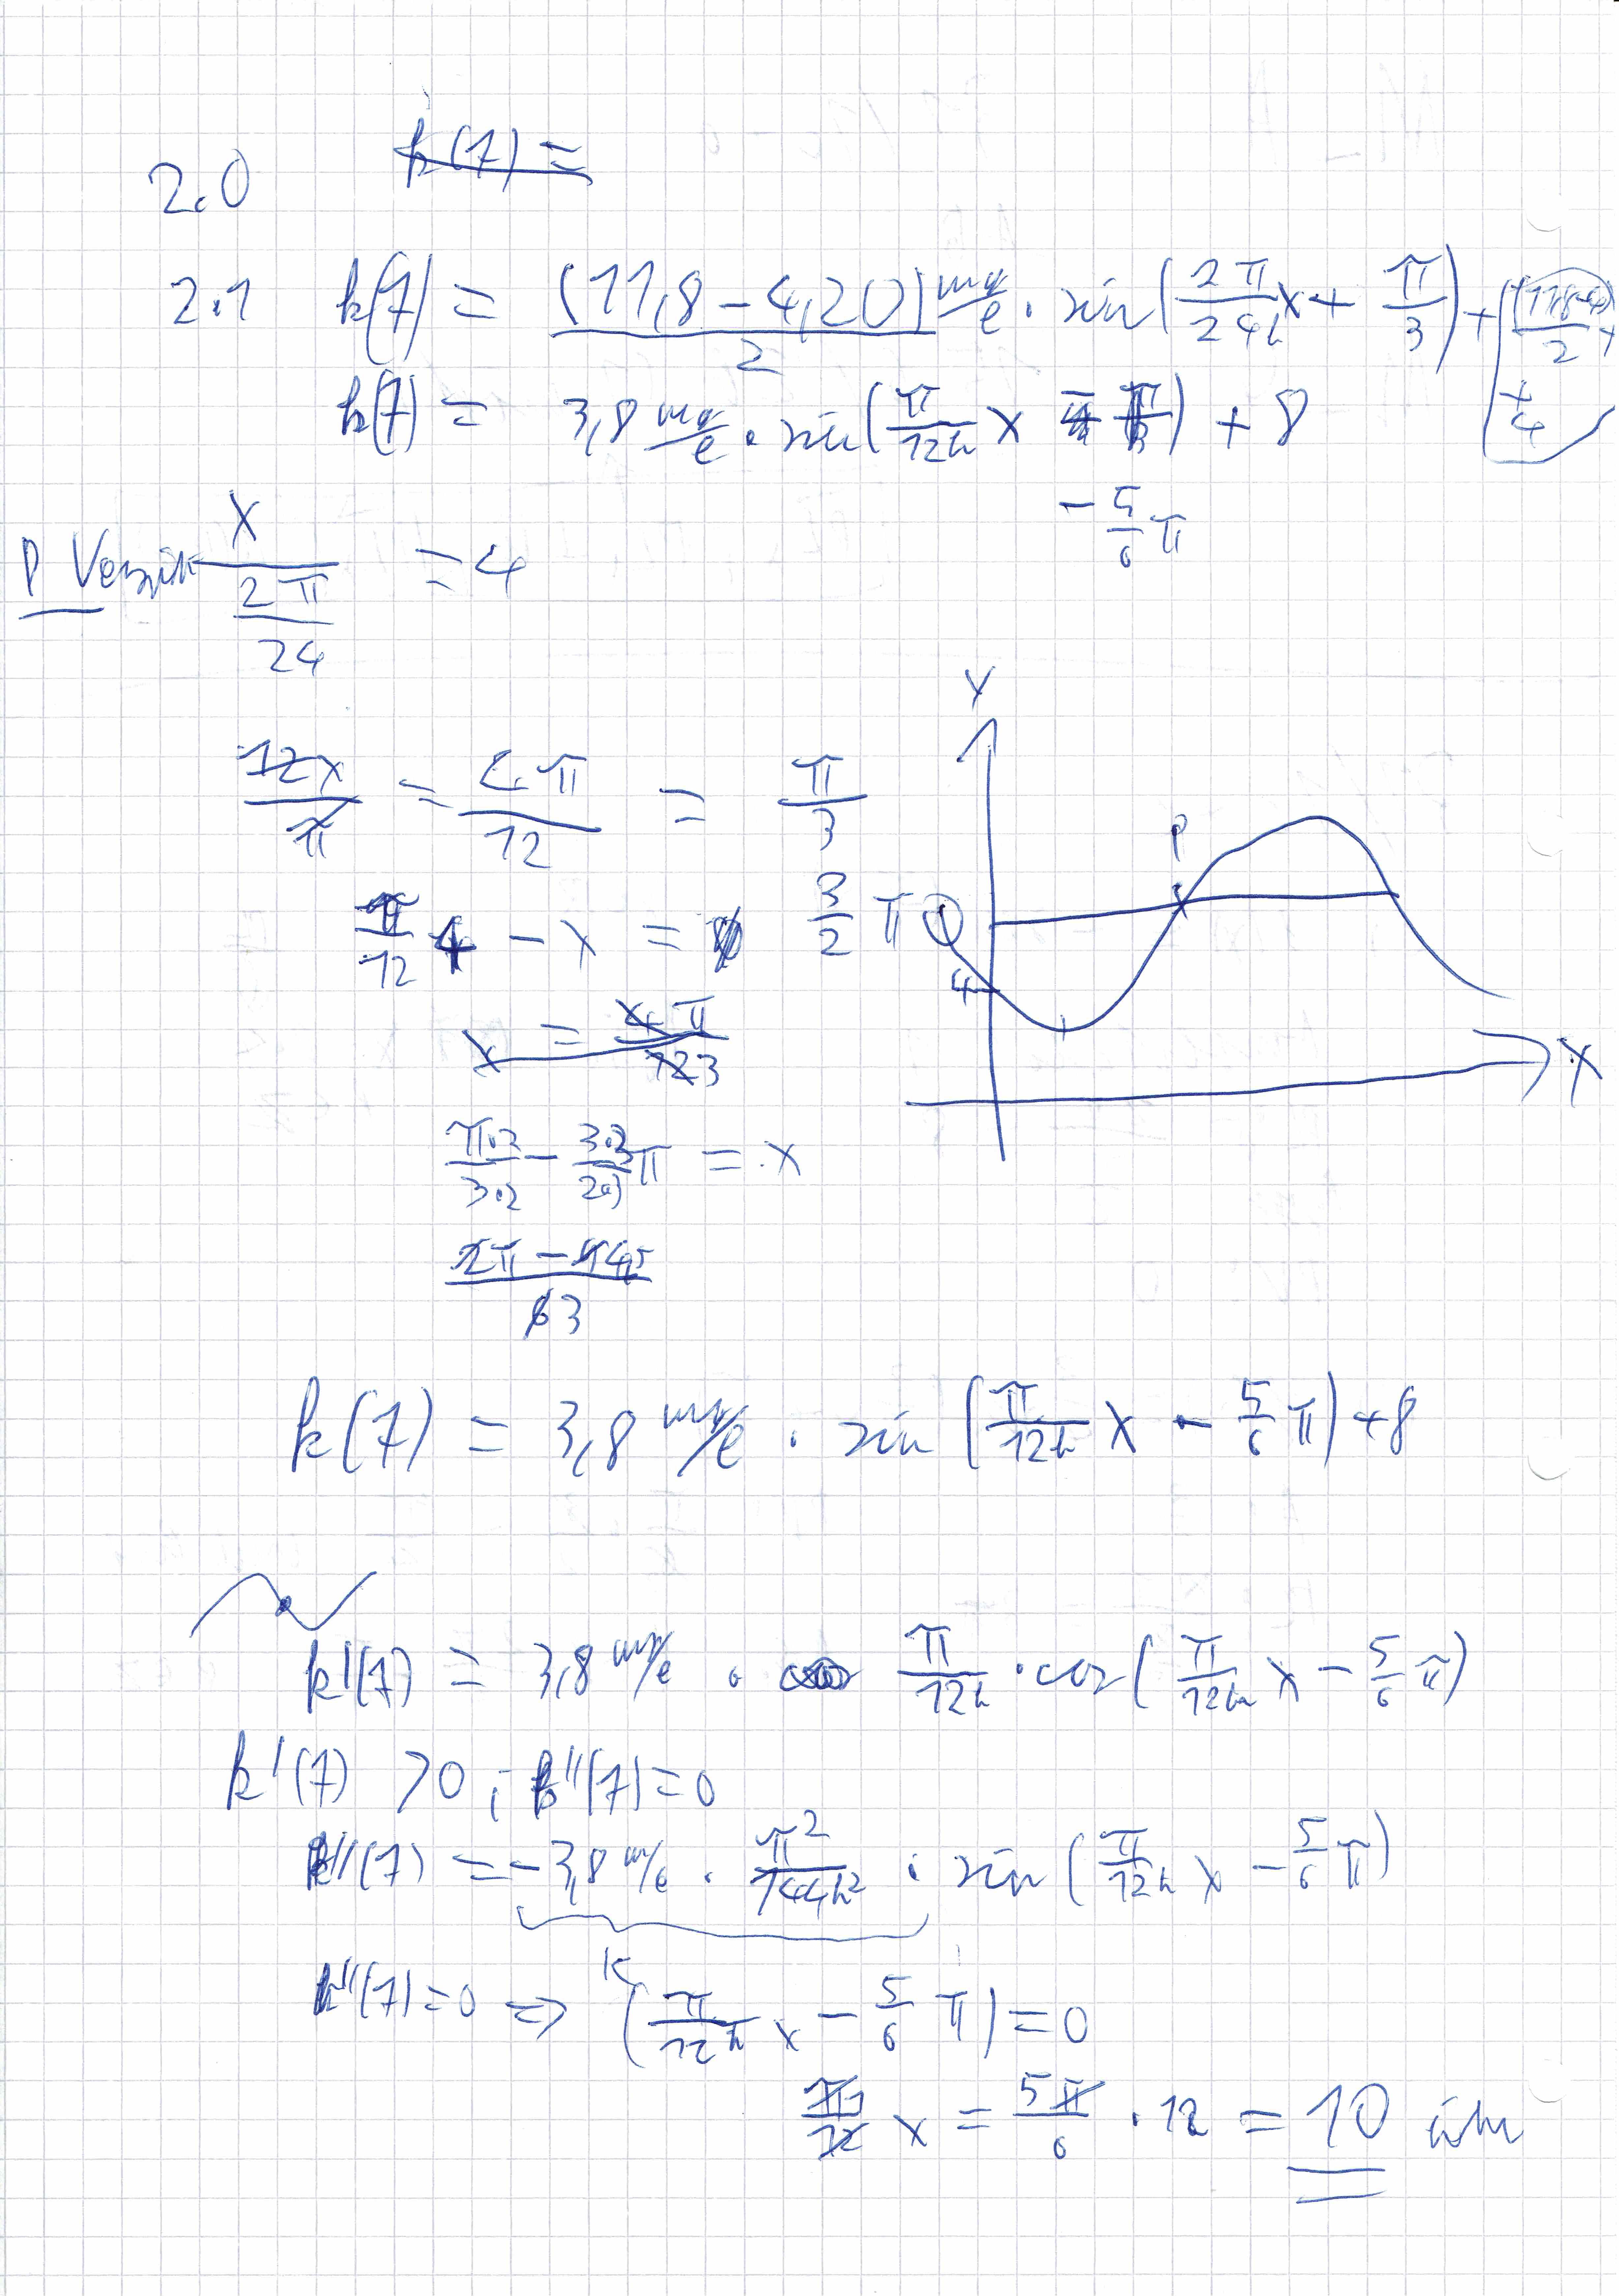 k(7) =
2.0
2.1 k(7) = (11,8 - 4,20)/2 mg/l · sin(2π/24h x + π/3) + ((11,8-4)/2 + 4)
k(7) = 3,8 mg/l · sin(π/12h x) + 8
- 5/6 π
P x/(2π/24) = 4
12x/π = 4π/12 = π/3
π/12 4 - x = 3/2 π
x = 4π/12 3
π·2/3·2 - 3·3/2·3 π = x
y
P
4
x
k(7) = 3,8 mg/l · sin(π/12h x - 5/6 π) + 8
k'(7) = 3,8 mg/l · π/12h · cos(π/12h x - 5/6 π)
k'(7) > 0 ; k''(7) = 0
k''(7) = -3,8 m/l · π²/144h² · sin(π/12h x - 5/6 π)
K
k''(7) = 0 => (π/12h x - 5/6 π) = 0
π/12 x = 5π/6 · 12 = 10